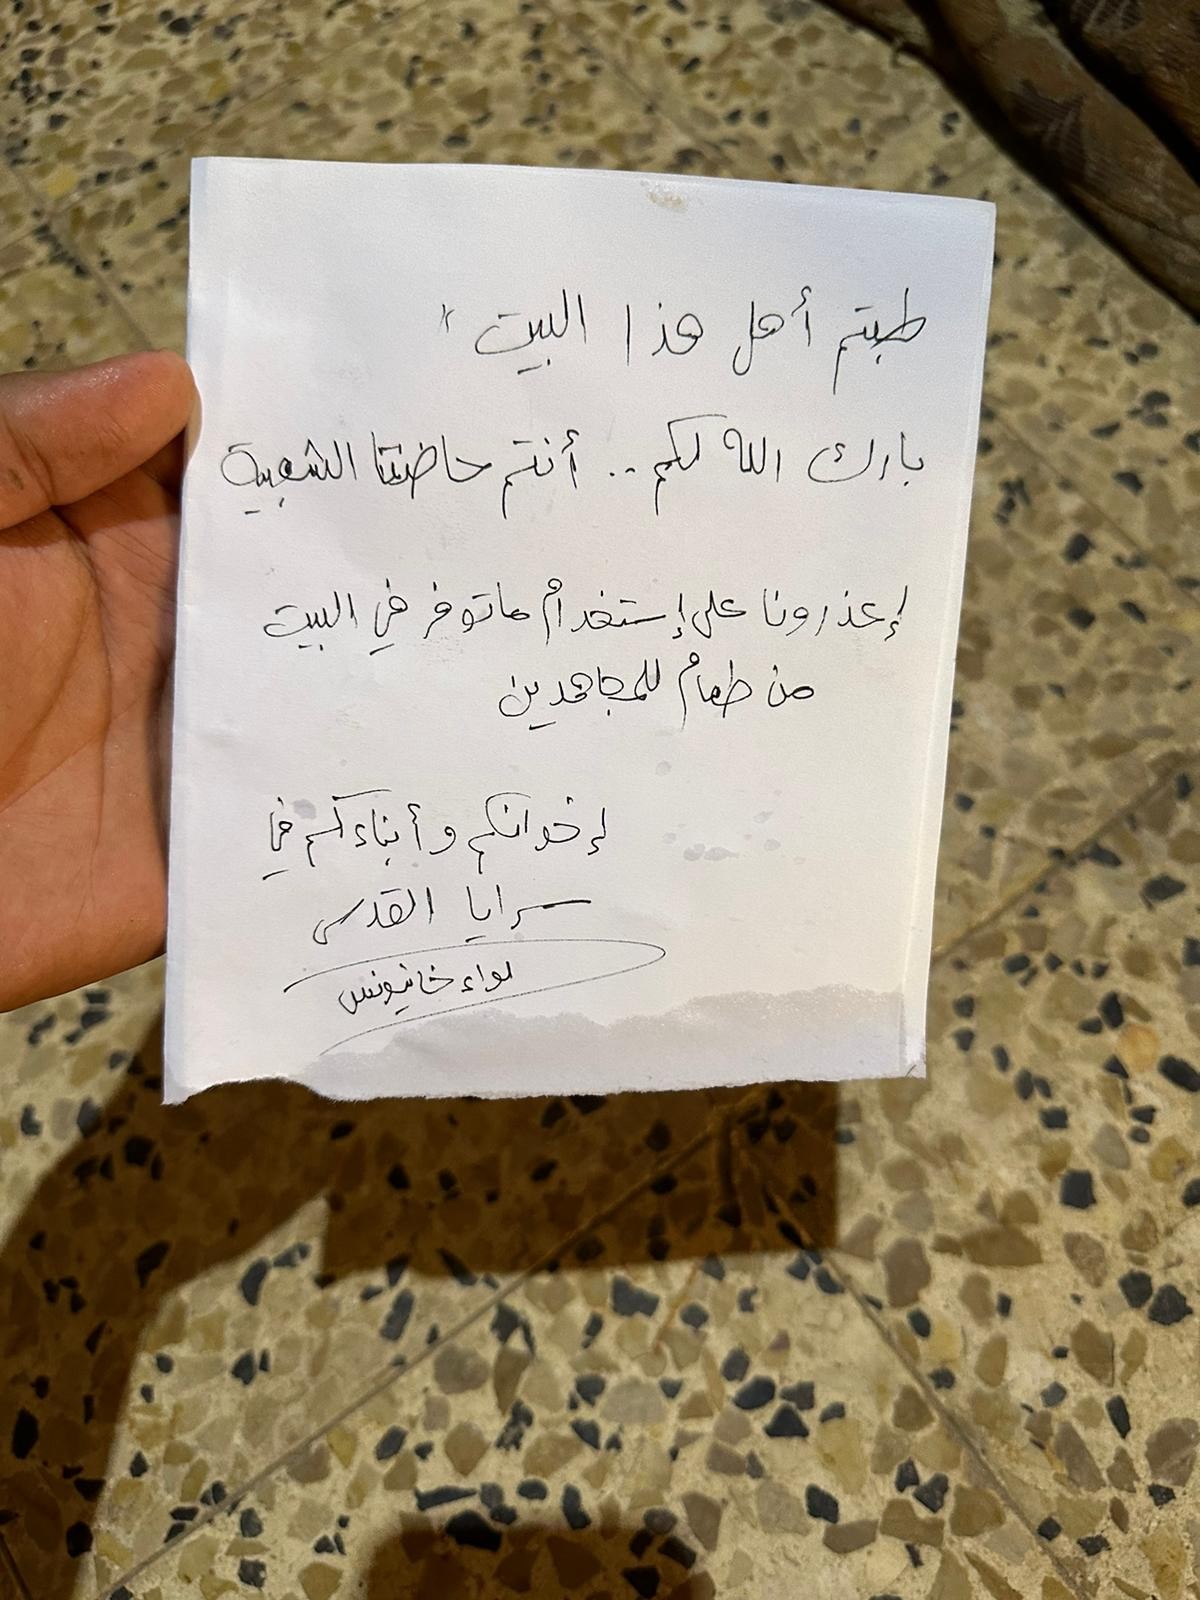 طبتم أهل هذا البيت "
بارك الله لكم .. أنتم حاضنتنا الشعبية
إعذرونا على إستخدام ماتوفر في البيت
من طعام للمجاهدين
إخوانكم وأبناءكم في
سرايا القدس
لواء خانيونس